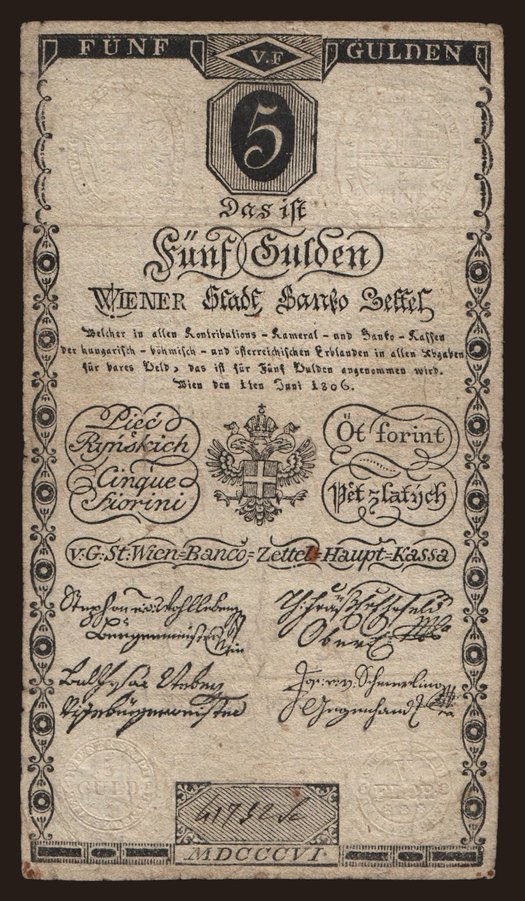 FÜNF V.F GULDEN
5
Das ist
Fünf Gulden
WIENER Stadt Banko Zettel
Welcher in allen Kontributions - Kameral - und Banko - Kassen
der hungarisch - böhmisch - und österreichischen Erblanden in allen Abgaben
für bares Geld, das ist für Fünf Gulden angenommen wird.
Wien den 1ten Juni 1806.
Pięć
Ryńskich
Öt forint
Cinque
Fiorini
Pět zlatých
v.G:St:Wien=Banco=Zettel=Haupt=Kassa
Stephan
Bürgermeister
Ober
Balthasar
Vizebürgermeister
Jos:
Gegenhand
5
GULD
41732
MDCCCVI